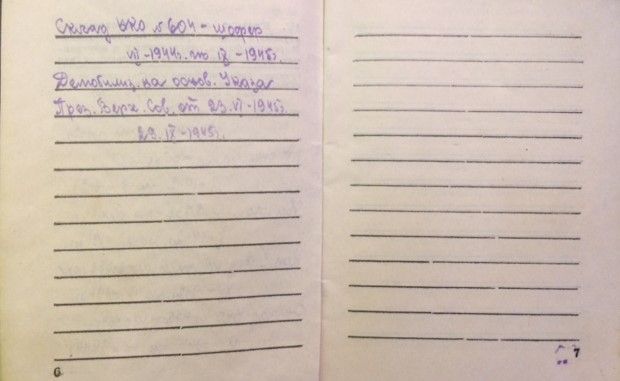 Склад НКО № 604 - шофер
VII - 1944г. по IX - 1945г.
Демобилиз. на основ. Указа
През. Верх. Сов. от 23. VI - 1945г.
29. IX - 1945г.
6
7